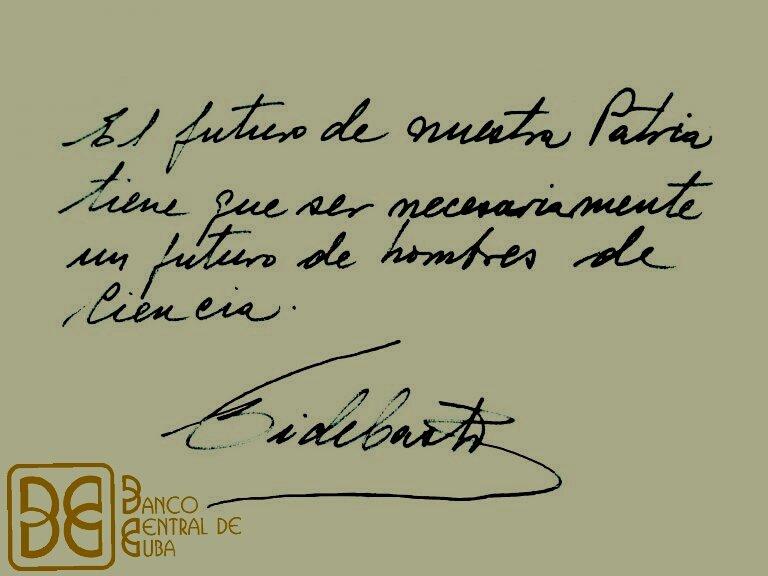 El futuro de nuestra Patria
tiene que ser necesariamente
un futuro de hombres de
Ciencia.
Fidel Castro
BANCO
CENTRAL DE
CUBA